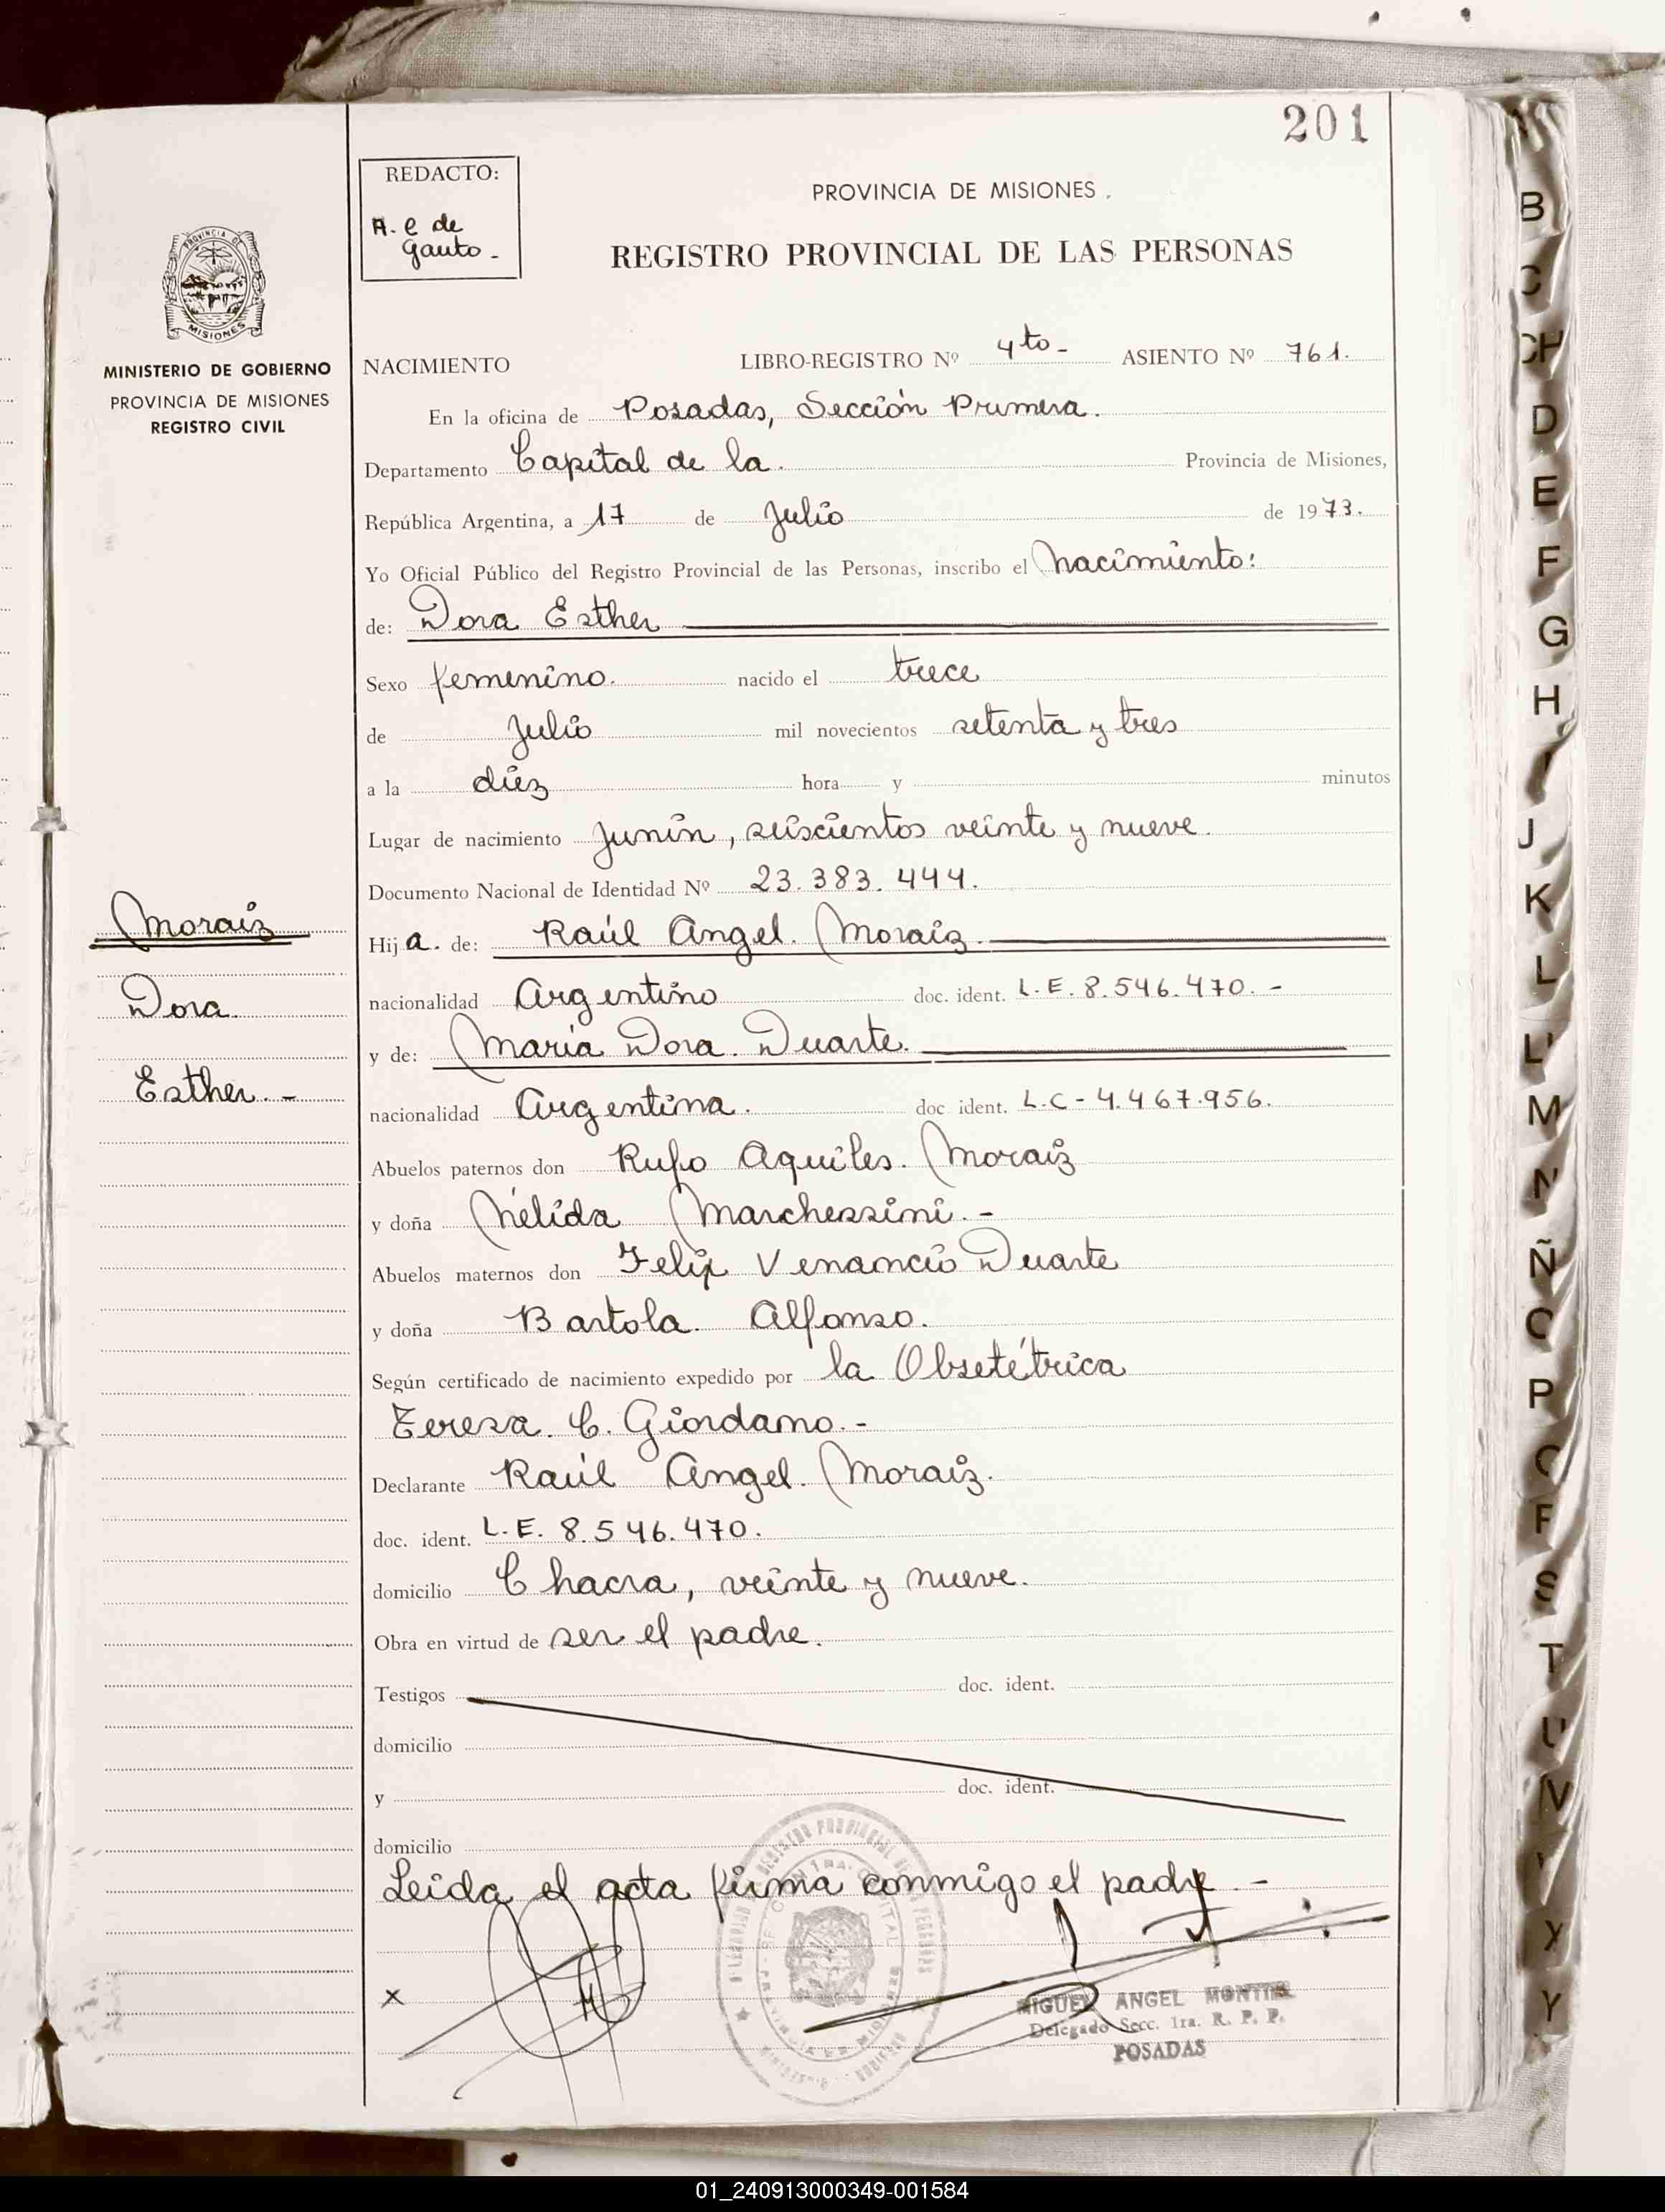 201
REDACTO:
A. e de
Gauto -
PROVINCIA DE MISIONES
REGISTRO PROVINCIAL DE LAS PERSONAS
MISIONES
MINISTERIO DE GOBIERNO
PROVINCIA DE MISIONES
REGISTRO CIVIL
NACIMIENTO LIBRO-REGISTRO Nº 4to- ASIENTO Nº 761.
En la oficina de Posadas, Sección Primera.
Departamento Capital de la. Provincia de Misiones,
República Argentina, a 17 de Julio de 1973.
Yo Oficial Público del Registro Provincial de las Personas, inscribo el Nacimiento:
de: Dora Esther
Sexo femenino. nacido el trece
de Julio mil novecientos setenta y tres
a la diez hora y minutos
Lugar de nacimiento Junín, seiscientos veinte y nueve.
Documento Nacional de Identidad Nº 23.383.444.
Hija. de: Raúl Angel. Moraiz.
nacionalidad Argentino doc. ident. L.E. 8.546.470. -
y de: María Dora. Duarte.
nacionalidad Argentina. doc ident. L.C - 4.467.956.
Abuelos paternos don Rufo Aquiles. Moraiz
y doña Nélida Marchessini. -
Abuelos maternos don Felix Venancio Duarte
y doña Bartola. Alfonso.
Según certificado de nacimiento expedido por la Obsetétrica
Teresa. C. Giordano. -
Declarante Raúl Angel. Moraiz.
doc. ident. L.E. 8.546.470.
domicilio Chacra, veinte y nueve.
Obra en virtud de ser el padre.
Testigos doc. ident.
domicilio
y doc. ident.
domicilio
Leida el acta firma conmigo el padre. -
x
MIGUEL ANGEL
Delegado Secc. 1ra. R. P. P.
POSADAS
Moraiz
Dora.
Esther. -
B
C
CH
D
E
F
G
H
I
J
K
L
LL
M
N
Ñ
O
P
Q
S
T
U
V
X
Y
01_240913000349-001584